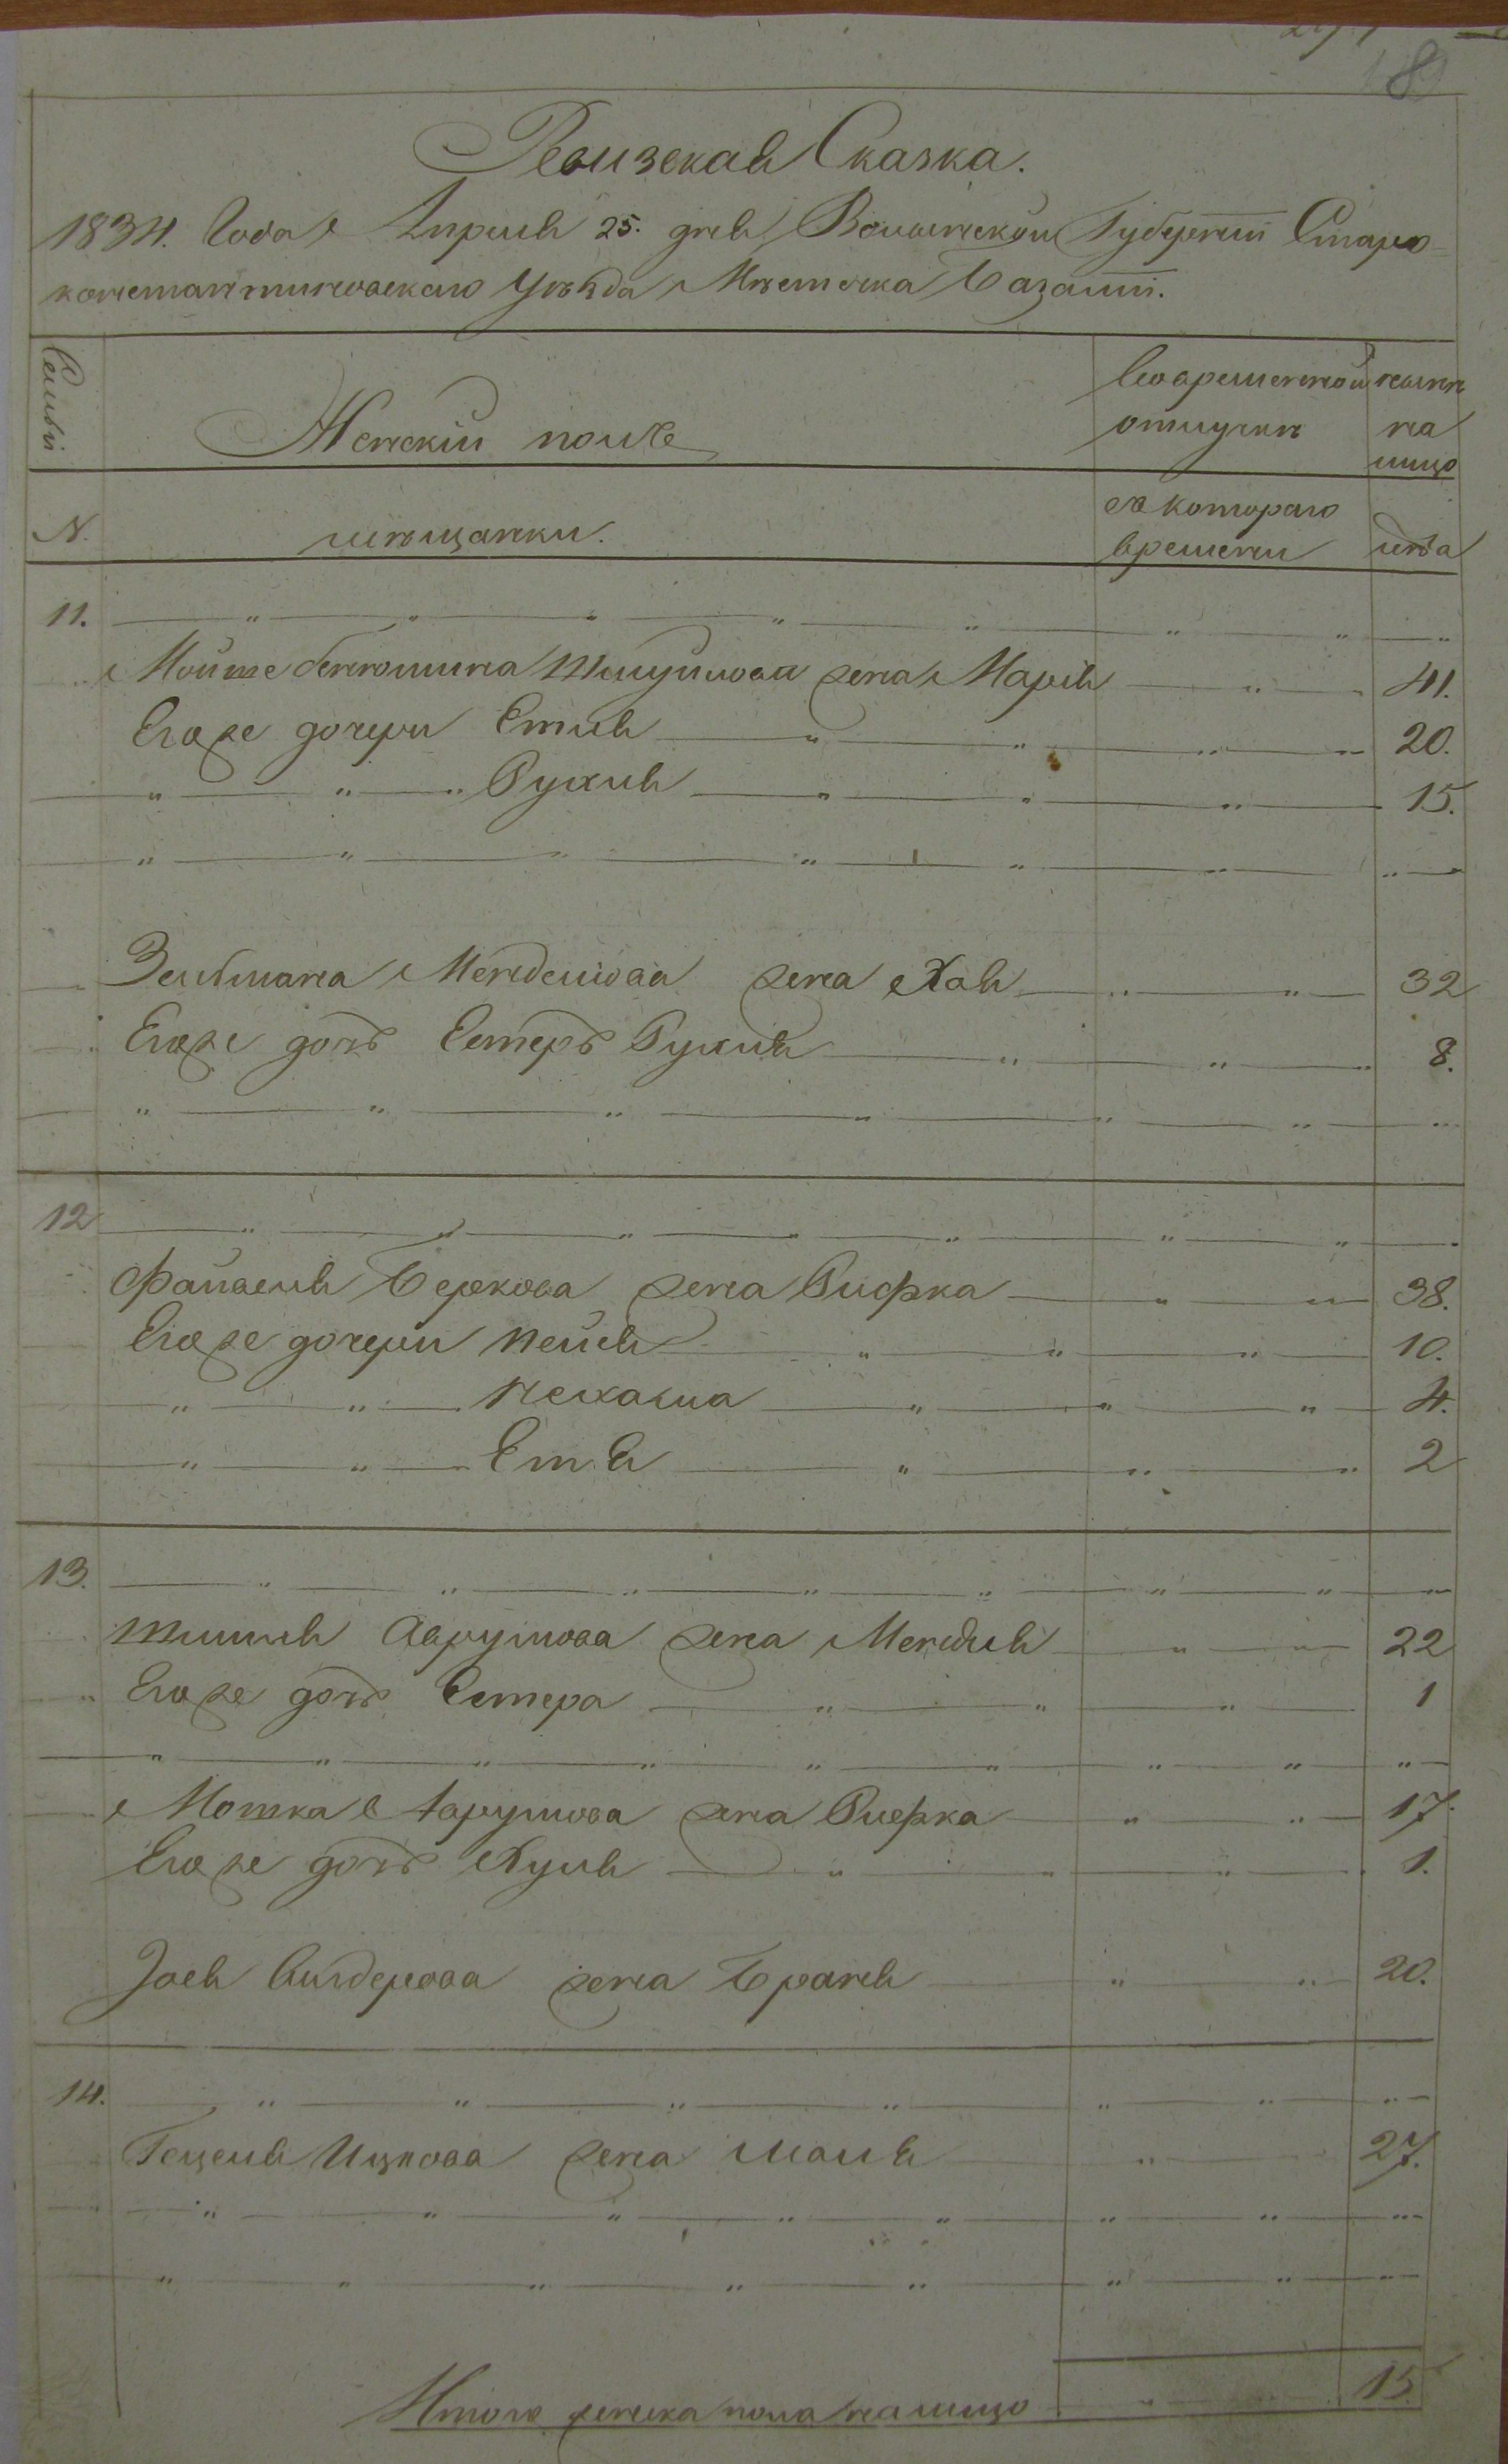 18
Ревизская Сказка.
1834. Года Апреля 25. дня Волынской Губернии Старо
константиновскаго Уѣзда Мѣстечка Базалии.
Семьи
Женскій полъ
Во временной
отлучкѣ
нынѣ
на
лицо
N.
мѣщанки.
съ котораго
времени
лѣта
11. " " " " " " " "
Мойше Бенюмина Шмулиова жена Марія " " 41.
Его же дочери Етля " " " " 20.
" " " Рухля " " " 15.
" " " " " " "
Зейлмана Менделиова жена Хая " " 32
Его же дочь Естеръ Рухля " " " 8.
" " " " " " "
12 " " " " " " "
Файвеля Беркова жена Рифка " " 38.
Его же дочери Пейся " " " 10.
" " Нехама " " " 4.
" " Етя " " " 2
13. " " " " " " " "
Шмиля Аврумова жена Мендля " " 22
" Его же дочь Естера " " " 1
" " " " " " " " "
Мошка Аврумова жена Рифка " " 17.
Его же дочь Хуля " " " 1.
Зося Сындерова жена Браня " " 20.
14. " " " " " " "
Гецеля Ицкова жена Маля " 27.
" " " " " " " "
" " " " " " " "
Итого женска пола на лицо " 15